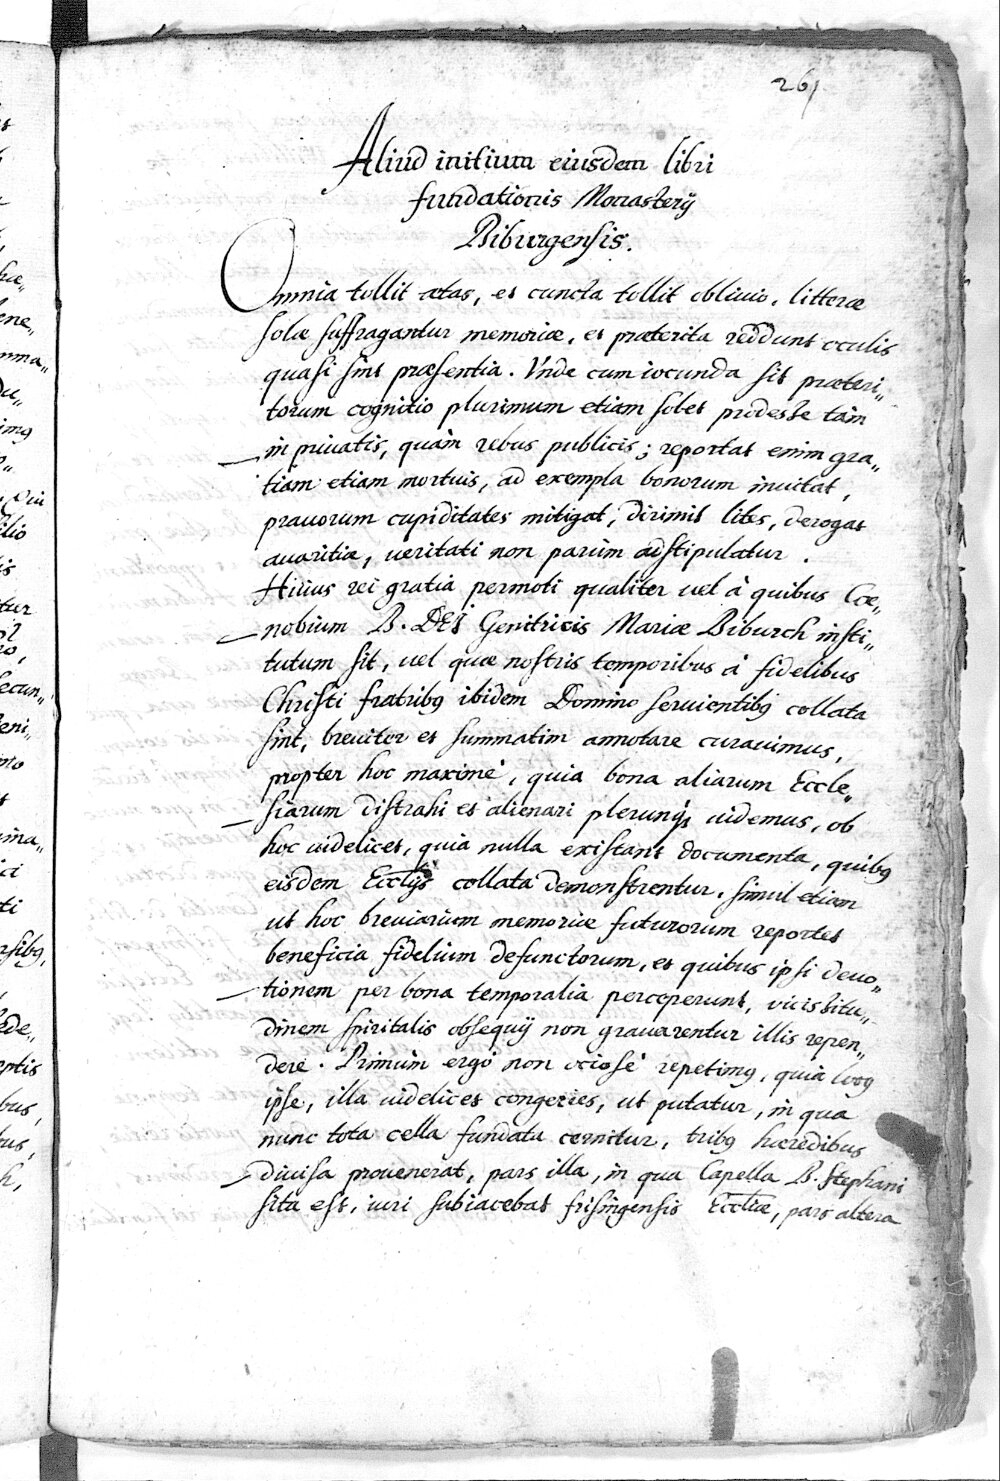 261
Aliud initium eiusdem libri
fundationis Monasterÿ
Biburgensis.
Omnia tollit ætas, et cuncta tollit obliuio, litteræ
solæ suffragantur memoriæ, et præterita reddunt oculis
quasi sint præsentia. Vnde cum iocunda sit præteri„
torum cognitio plurimum etiam solet prodesse tàm
in priuatis, quàm rebus publicis; reportat enim gra„
tiam etiam mortuis, ad exempla bonorum inuitat,
prauorum cupiditates mitigat, dirimit lites, derogat
auaritiæ, ueritati non parùm adstipulatur.
Huius rei gratia permoti qualiter uel à quibus Cœ„
nobium B. DEI Genitricis Mariæ Biburch insti„
tutum sit, uel quæ nostris temporibus à fidelibus
Christi fratribꝫ ibidem Domino seruientibꝫ collata
sint, breuiter et summatim annotare curauimus,
propter hoc maximè, quia bona aliarum Eccle„
siarum distrahi et alienari plerunqꝫ uidemus, ob
hoc uidelicet, quia nulla existant documenta, quibꝫ
eisdem Eccliÿs collata demonstrentur, simul etiam
ut hoc breuiarium memoriæ futurorum reportet
beneficia fidelium defunctorum, et quibus ipsi deuo„
tionem per bona temporalia perceperunt, uicissitu„
dinem spiritalis obsequÿ non grauarentur illis repen„
dere. Primùm ergò non ociosè repetimꝫ, quia locꝫ
ipse, illa uidelicet congeries, ut putatur, in qua
nunc tota cella fundata cernitur, tribꝫ hæredibus
diuisa prouenerat, pars illa, in qua Capella B. Stephani
sita est, iuri subiacebat frisingensis Eccliæ, pars altera